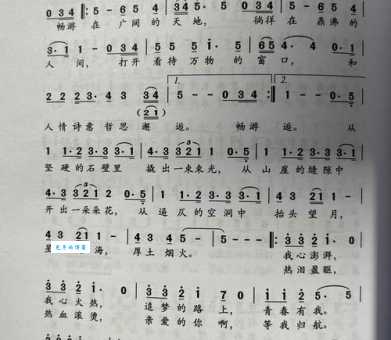 0 3 4 ‖: 5 - 6 5 5 | 4 3 4 5 5 | 5 - 6 5 4 | 0 3 4
畅游 在 广阔 的 天 地， 徜徉 在 鼎沸 的
3· 1 1 - 0 3 4 | 5 5 5 i· 5 | 6 5 4· 4 0· 1
人 间， 打开 看待 万物 的 窗口， 和
1. 2.
2 2 2 3· 4 3 3 4 | 5 - - 0 3 4 :‖ 1 - - 0· 5
(2 1)
人情诗意 哲思 邂 逅。 畅游 逅。 从
1 1· 2 3· 3 3· 1 | 4· 3 3 2 1 1 0· 5 | 1 1· 2 3· 3 3· 1
坚 硬的石壁里 撬出一束束光， 从 山 崖的缝隙中
4· 3 3 2 1 2 0· 5 | 1 1· 2 3· 3 3· 1 | 4 3 2 1 1 -
开出一朵朵花， 从 逼仄的空洞中 抬头望月，
4 3 2 1 - | 4 3 4 5 - | 5 - - - :‖: 3 3 2 i· 0
星 海， 厚土 烟火。 我心澎湃，
热泪盈眶，
3 3 2 i· 0 | 3 3 2 i 7 0 | i i 2 5· 5
我心火热， 追梦的路上， 青春有我。
热血滚烫， 亲爱的你啊， 等我归航。